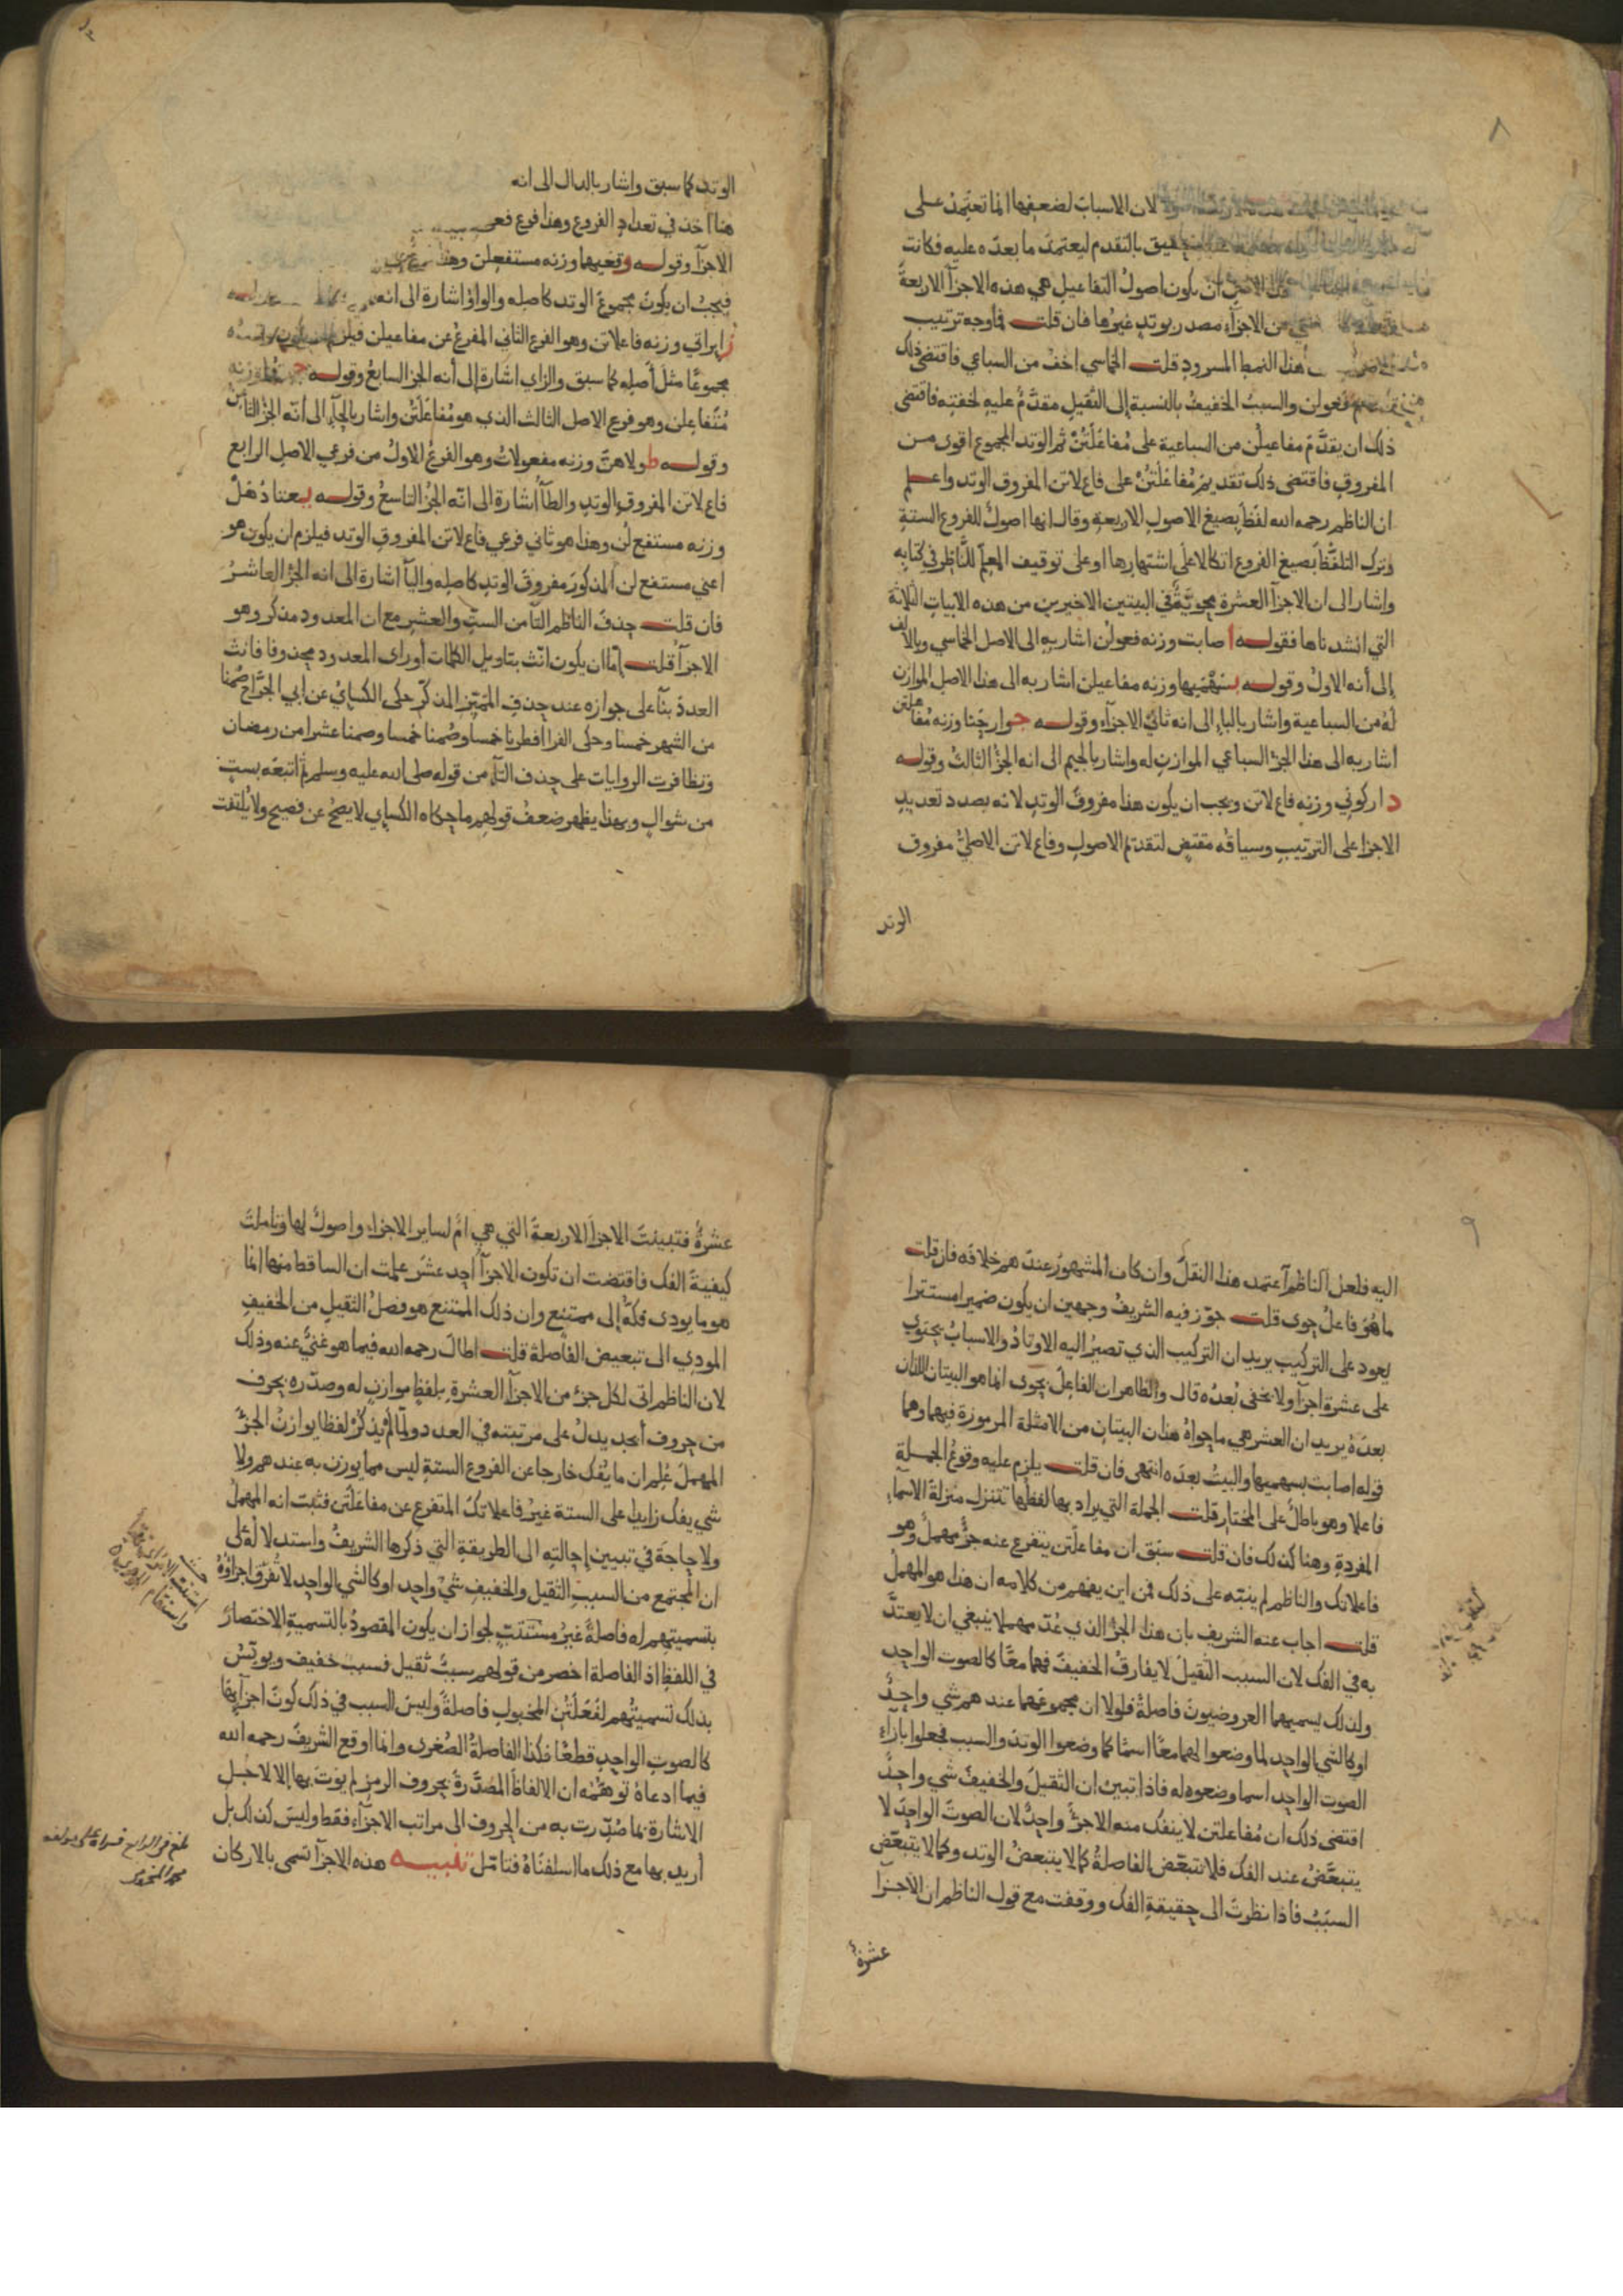 ٨
لان الاسباب لضعفها انما تعتمد على
بالتقدم ليعتمد ما بعده عليه فكانت
ان يكون اصول التفاعيل هي هذه الاجزآ الاربعة
من الاجزآء مصدر بوتد غيرها فان قلت فما وجه ترتيب
هذا النمط المسرود قلت الخماسي اخف من السباعي فاقتضى ذلك
فعولن والسبب الخفيف بالنسبة إلى الثقيل مقدَّمٌ عليه لخفته فاقتضى
ذلك ان يقدَّم مفاعيلن من السباعية على مُفاعَلَتُنْ ثم الوتد المجموع اقوى من
المفروق فاقتضى ذلك تقديم مُفاعَلَتُنْ على فاع لاتن المفروق الوتد واعلم
ان الناظم رحمه الله لفَظَ بصيغ الاصول الاربعة وقال انها اصولٌ للفروع الستة
وترك التلفّظ بصيغ الفروع اتكالا على اشتهارها او على توقيف المعلّم للنّاظر في كتابه
واشار الى ان الاجزآ العشرة محويَّةٌ في البيتين الاخيرين من هذه الابيات الثلاثة
التي انشدناها فقوله أ صابت وزنه فعولن اشار به الى الاصل الخماسي وبالالف
إلى أنه الاولُ وقوله بسهمَيها وزنه مفاعيلن اشار به الى هذا الاصل الموازن
لهُ من السباعية واشار بالبإ الى انه ثاني الاجزآء وقوله جوارحنا وزنه مُفاعلتن
اشار به الى هذا الجزء السباعي الموازن له واشار بالجيم الى انه الجزُ الثالث وقوله
دارگوني وزنه فاع لاتن ويجب ان يكون هذا مفروقَ الوتد لانه بصدد تعديد
الاجزا على الترتيب وسياقُه مقتضٍ لتقدّم الاصول وفاع لاتن الاصليُّ مفروق
الوتد
الوتد كما سبق واشار بالدال الى انه
هنا اخذ في تعداد الفروع وهذا فرع
الاجزآ وقوله وقعيها وزنه مستفعلن وهذا
فيجب ان يكون مجموعَ الوتد كاصله والواوُ اشارة الى انه
زايراتي وزنه فاعلاتن وهو الفرع الثاني المفرعُ عن مفاعيلن فيلزم
مجموعًا مثل أصله كما سبق والزاي اشارة إلى أنه الجزُ السابعُ وقوله
مُتَفاعلن وهو فرع الاصل الثالث الذي هو مُفاعَلَتُنْ واشار بالحآءِ الى أنّه الجزُ الثامن
وقوله طولاهنّ وزنه مفعولاتُ وهو الفرعُ الاولُ من فرعي الاصل الرابع
فاع لاتن المفروق الوتد والطآ اشارة الى انّه الجزُ التاسعُ وقوله يعتادهن
وزنه مستفع لن وهذا هو ثاني فرعي فاع لاتن المفروق الوتد فيلزم ان يكون هو
اعني مستفع لن المذكورَ مفروقَ الوتد كاصله واليآ اشارة الى انه الجزُ العاشرُ
فان قلت حذفَ الناظمُ التآ من الستِّ والعشرِ مع ان المعدود مذكر وهو
الاجزآ قلت إمّا ان يكون انّث بتاويل الكلمات أو رأى المعدود محذوفا فانث
العددَ بنآً على جوازه عند حذف المُمَيَّز المذكّر حكى الكسايُ عن أبي الجرَّاح صُمنا
من الشهر خمسا وحكى الفرا افطرنا خمسا وصُمنا خمسا وصمنا عشرا من رمضان
وتظافرت الروايات على حذف التآ من قوله صلى الله عليه وسلم ثم اتبعَه بستٍ
من شوال وبهذا يظهر ضعفُ قولهم ما حكاه الكساي لا يصحُّ عن فصيح ولا يُلتفت
٩
اليه فلعل الناظم آعتمد هذا النقلَ وان كان المشهور عندهم خلافَه فان قلت
ما هُوَ فاعلُ حوى قلت جوّز فيه الشريفُ وجهين ان يكون ضميرا مستترا
يعود على التركيب يريد ان التركيب الذي تصيرُ اليه الاوتادُ والاسبابُ يحتوي
على عشرة اجزآ ولا يخفى بُعدُه قال والظاهر ان الفاعل بحوى انما هو البيتان اللذان
بعدَهُ يريد ان العشر هي ما حواهُ هذان البيتانِ من الامثلة المرموزة فيهما وهما
قوله اصابت بسهميها والبيتُ بعدَه انتهى فان قلت يلزم عليه وقوعُ الجملة
فاعلا وهو باطلٌ على المختار قلت الجملة التي يراد بها لفظُها تتنزل منزلةَ الاسمآءِ
المفردة وهنا كذلك فان قلت سَبَق ان مفاعلَتن يتفرع عنه جزٌ مهملٌ وهو
فاعلاتك والناظم لم ينبّه على ذلك فمن اين يفهم من كلامه ان هذا هو المهمل
قلت اجاب عنه الشريف بان هذا الجزُ الذي عُدّ مهملا ينبغي ان لا يعتدّ
به في الفك لان السبب الثقيلَ لا يفارقُ الخفيفَ فهما معًا كالصوت الواحد
ولذلك يسميهما العروضيون فاصلةً فلولا ان مجموعَهما عندهم شي واحدٌ
او كالشي الواحد لما وضعوا لهما معًا اسمًا كما وضعوا الوتدَ والسبب فجعلوا بازآءِ
الصوت الواحد اسما وضعوه له فاذا تبين ان الثقيلَ والخفيفَ شي واحدٌ
اقتضى ذلك ان مُفاعلتن لا ينفك منه الا جزءٌ واحدٌ لان الصوتَ الواحدَ لا
يتبعَّضُ عند الفك فلا تتبعّض الفاصلةُ كما لا يتبعضُ الوتد وكما لا يتبعّضُ
السبَبُ فاذا نظرتَ الى حقيقة الفك ووقفت مع قول الناظم ان الاجزآ
عشرةٌ
عشرةٌ فتبينتَ الاجزآَ الاربعةَ التي هي امٌّ لساير الاجزاء واصولٌ لها وتاملتَ
كيفيةَ الفك فاقتضت ان تكون الاجزآُ احد عشَر علمت ان الساقط منها انما
هو ما يودى فكّهُ إلى ممتنِعٍ وان ذلك الممتنع هو فصلُ الثقيلِ من الخفيف
المودي الى تبعيض الفاصلة قلت اطالَ رحمه الله فيما هو غنيٌّ عنه وذلك
لان الناظم اتى لكل جزء من الاجزآ العشرةِ بلفظٍ موازنٍ له وصدّره بحرف
من حروف أبجد يدلُ على مرتبته في العدد ولمّا لم يذكُرْ لفظا يوازنُ الجزَ
المهملَ عُلم ان ما يُفك خارجا عن الفروع الستةِ ليس مما يوزن به عندهم ولا
شي يفك زايدا على الستة غيرُ فاعلاتك المتفرع عن مفاعَلَتُن فثبت انه المهملُ
ولا حاجةَ في تبيين إحالتِه الى الطريقةِ التي ذكرها الشريفُ واستدلالُه على
ان المجتمع من السببِ الثقيل والخفيف شيٌ واحد او كالشي الواحد لا تُفرّق اجزاؤهُ
بتسميتهم له فاصلةً غيرُ مستتبٍّ لجواز ان يكون المقصودُ بالتسمية الاختصارَ
في اللفظ اذ الفاصلة اخصر من قولهم سببٌ ثقيل فسبب خفيف ويونسُ
بذلك تسميتُهم لفَعَلَتُنِ المخبول فاصلةً وليسَ السبب في ذلك كونَ اجزآيها
كالصوت الواحدِ قطعًا فكذا الفاصلةُ الصُغرى وانما اوقع الشريفَ رحمه الله
فيما ادعاهُ توهُّمُه ان الالفاظَ المصَدَّرةَ بحروف الرمز لم يوتَ بها إلا لاجل
الاشارة بما صُدِّرت به من الحروف الى مراتب الاجزآءِ فقط وليسَ كذلك بل
أُريد بها مع ذلك ما اسلفنَاهُ فتامّل تنبيه هذه الاجزآ تسمى بالاركان